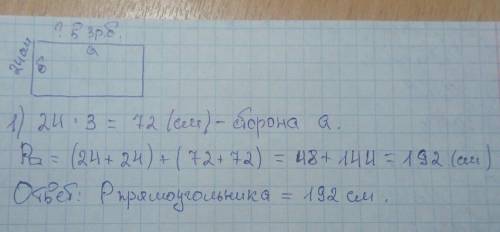 ? в 3р.б.
a
24см
в
1) 24 · 3 = 72 (см) - сторона a.
P = (24 + 24) + (72 + 72) = 48 + 144 = 192 (см)
Ответ: Pпрямоугольника = 192 см.